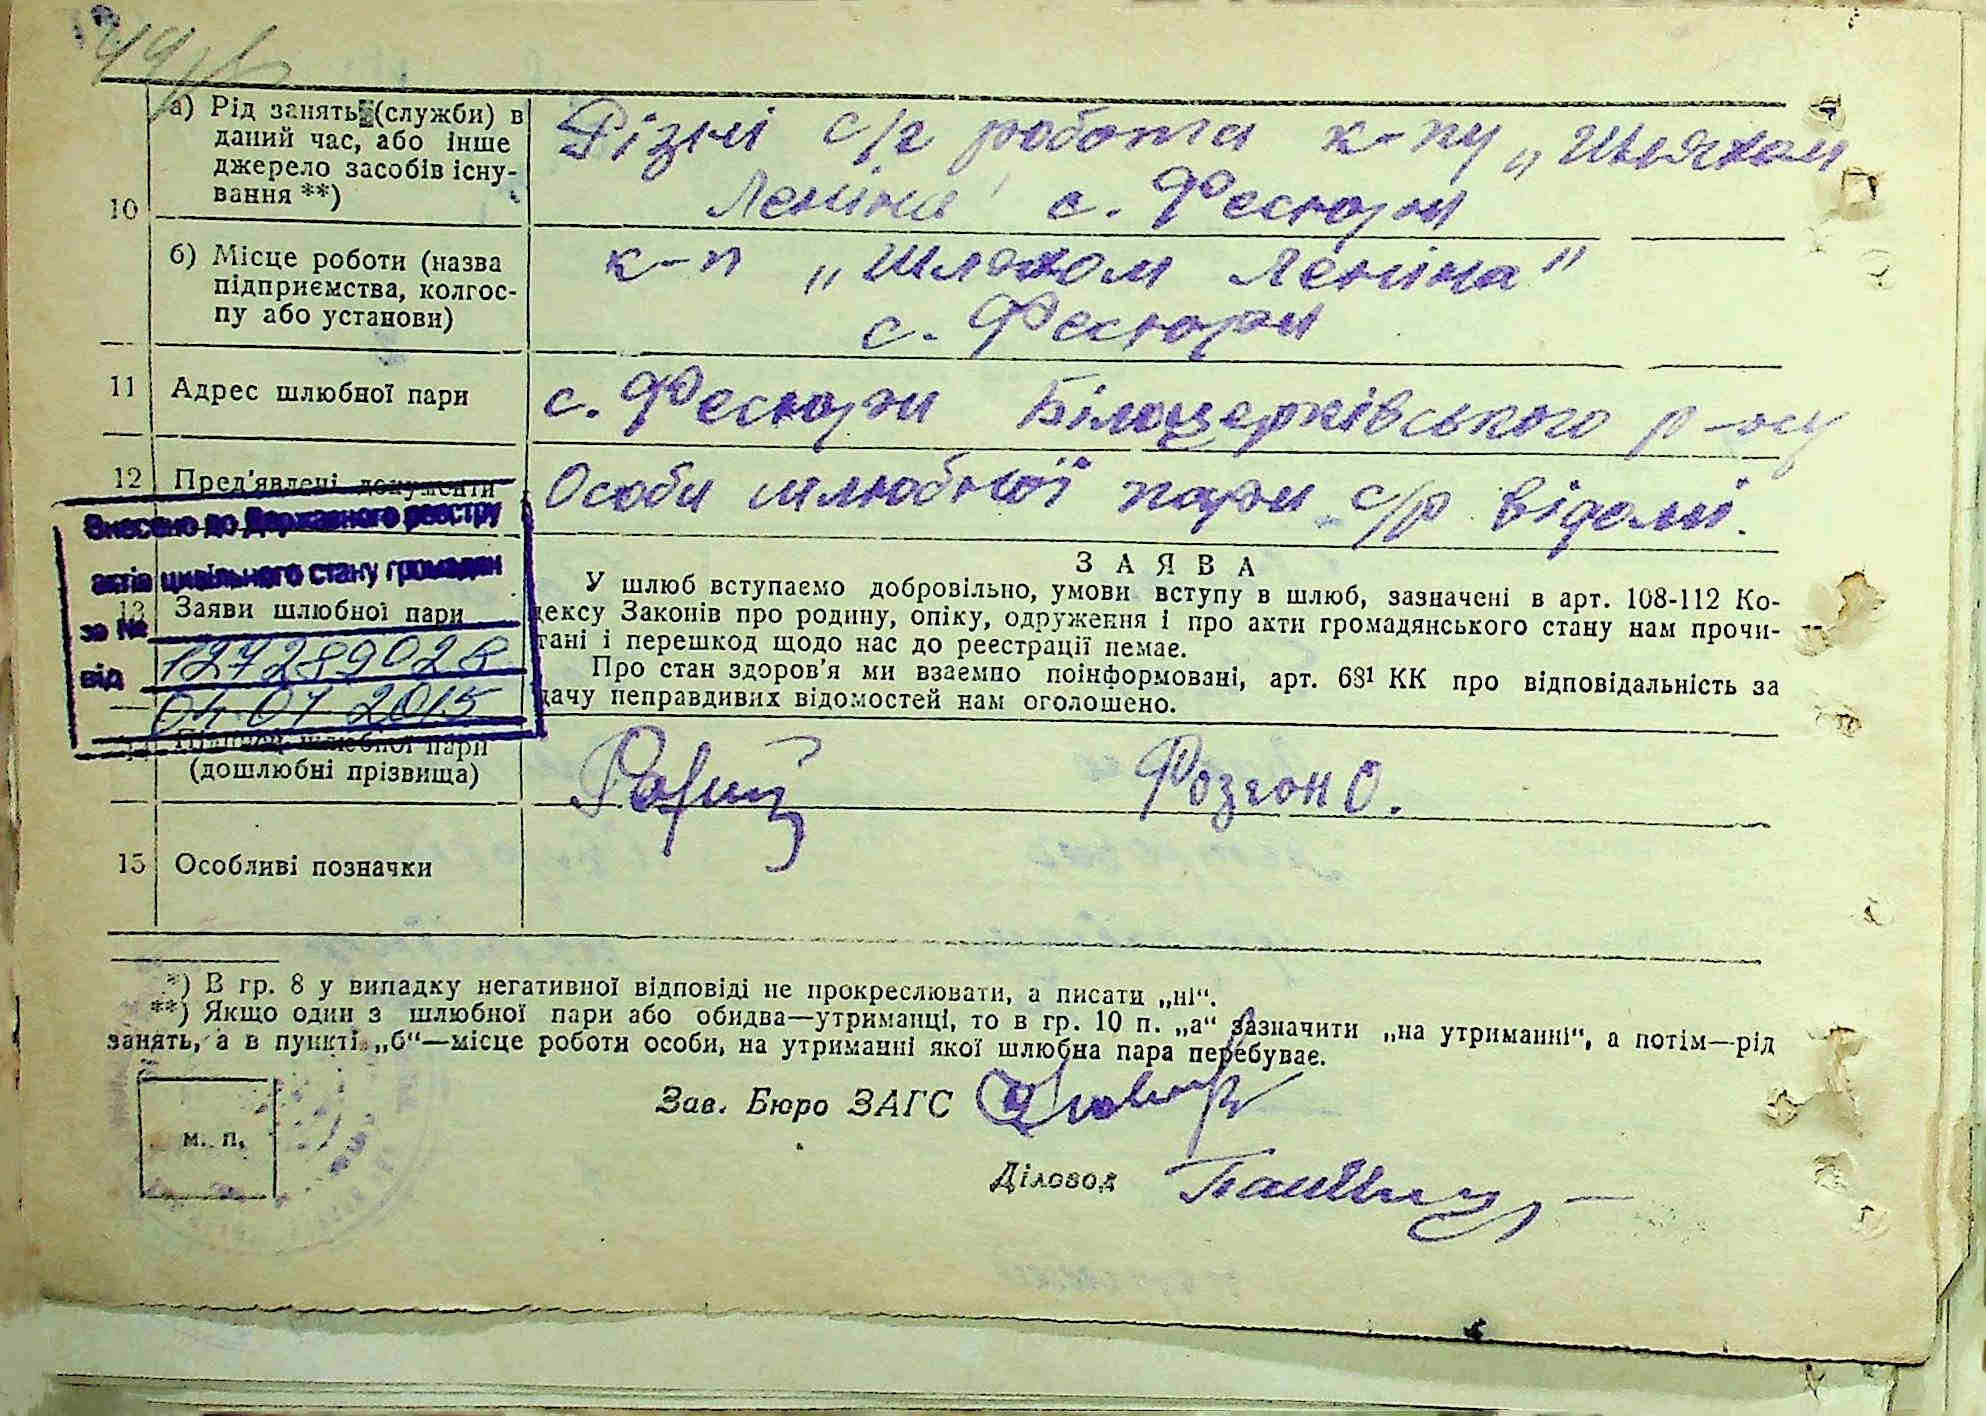 49
10
а) Рід занять (служби) в
даний час, або інше
джерело засобів існу-
вання **)
Різні с/г робота к-пу „Шляхом
Леніна" с. Фесюри
б) Місце роботи (назва
підприємства, колгос-
пу або установи)
к-п „Шляхом Леніна"
с. Фесюри
11 Адрес шлюбної пари
с. Фесюри Білоцерківського р-ну
12 Пред'явлені документи
Особи шлюбної пари с/р відомі.
Внесено до Державного реєстру
актів цивільного стану громадян
за №
127289028
від
04 07 2015
13 Заяви шлюбної пари
ЗАЯВА
У шлюб вступаємо добровільно, умови вступу в шлюб, зазначені в арт. 108-112 Ко-
дексу Законів про родину, опіку, одруження і про акти громадянського стану нам прочи-
тані і перешкод щодо нас до реєстрації немає.
Про стан здоров'я ми взаємно поінформовані, арт. 68¹ КК про відповідальність за
дачу неправдивих відомостей нам оголошено.
14 Підписи шлюбної пари
(дошлюбні прізвища)
Розгон О.
15 Особливі позначки
*) В гр. 8 у випадку негативної відповіді не прокреслювати, а писати „ні“.
**) Якщо один з шлюбної пари або обидва—утриманці, то в гр. 10 п. „а“ зазначити „на утриманні“, а потім—рід
занять, а в пункті „б“—місце роботи особи, на утриманні якої шлюбна пара перебуває.
Зав. Бюро ЗАГС
м. п.
Діловод